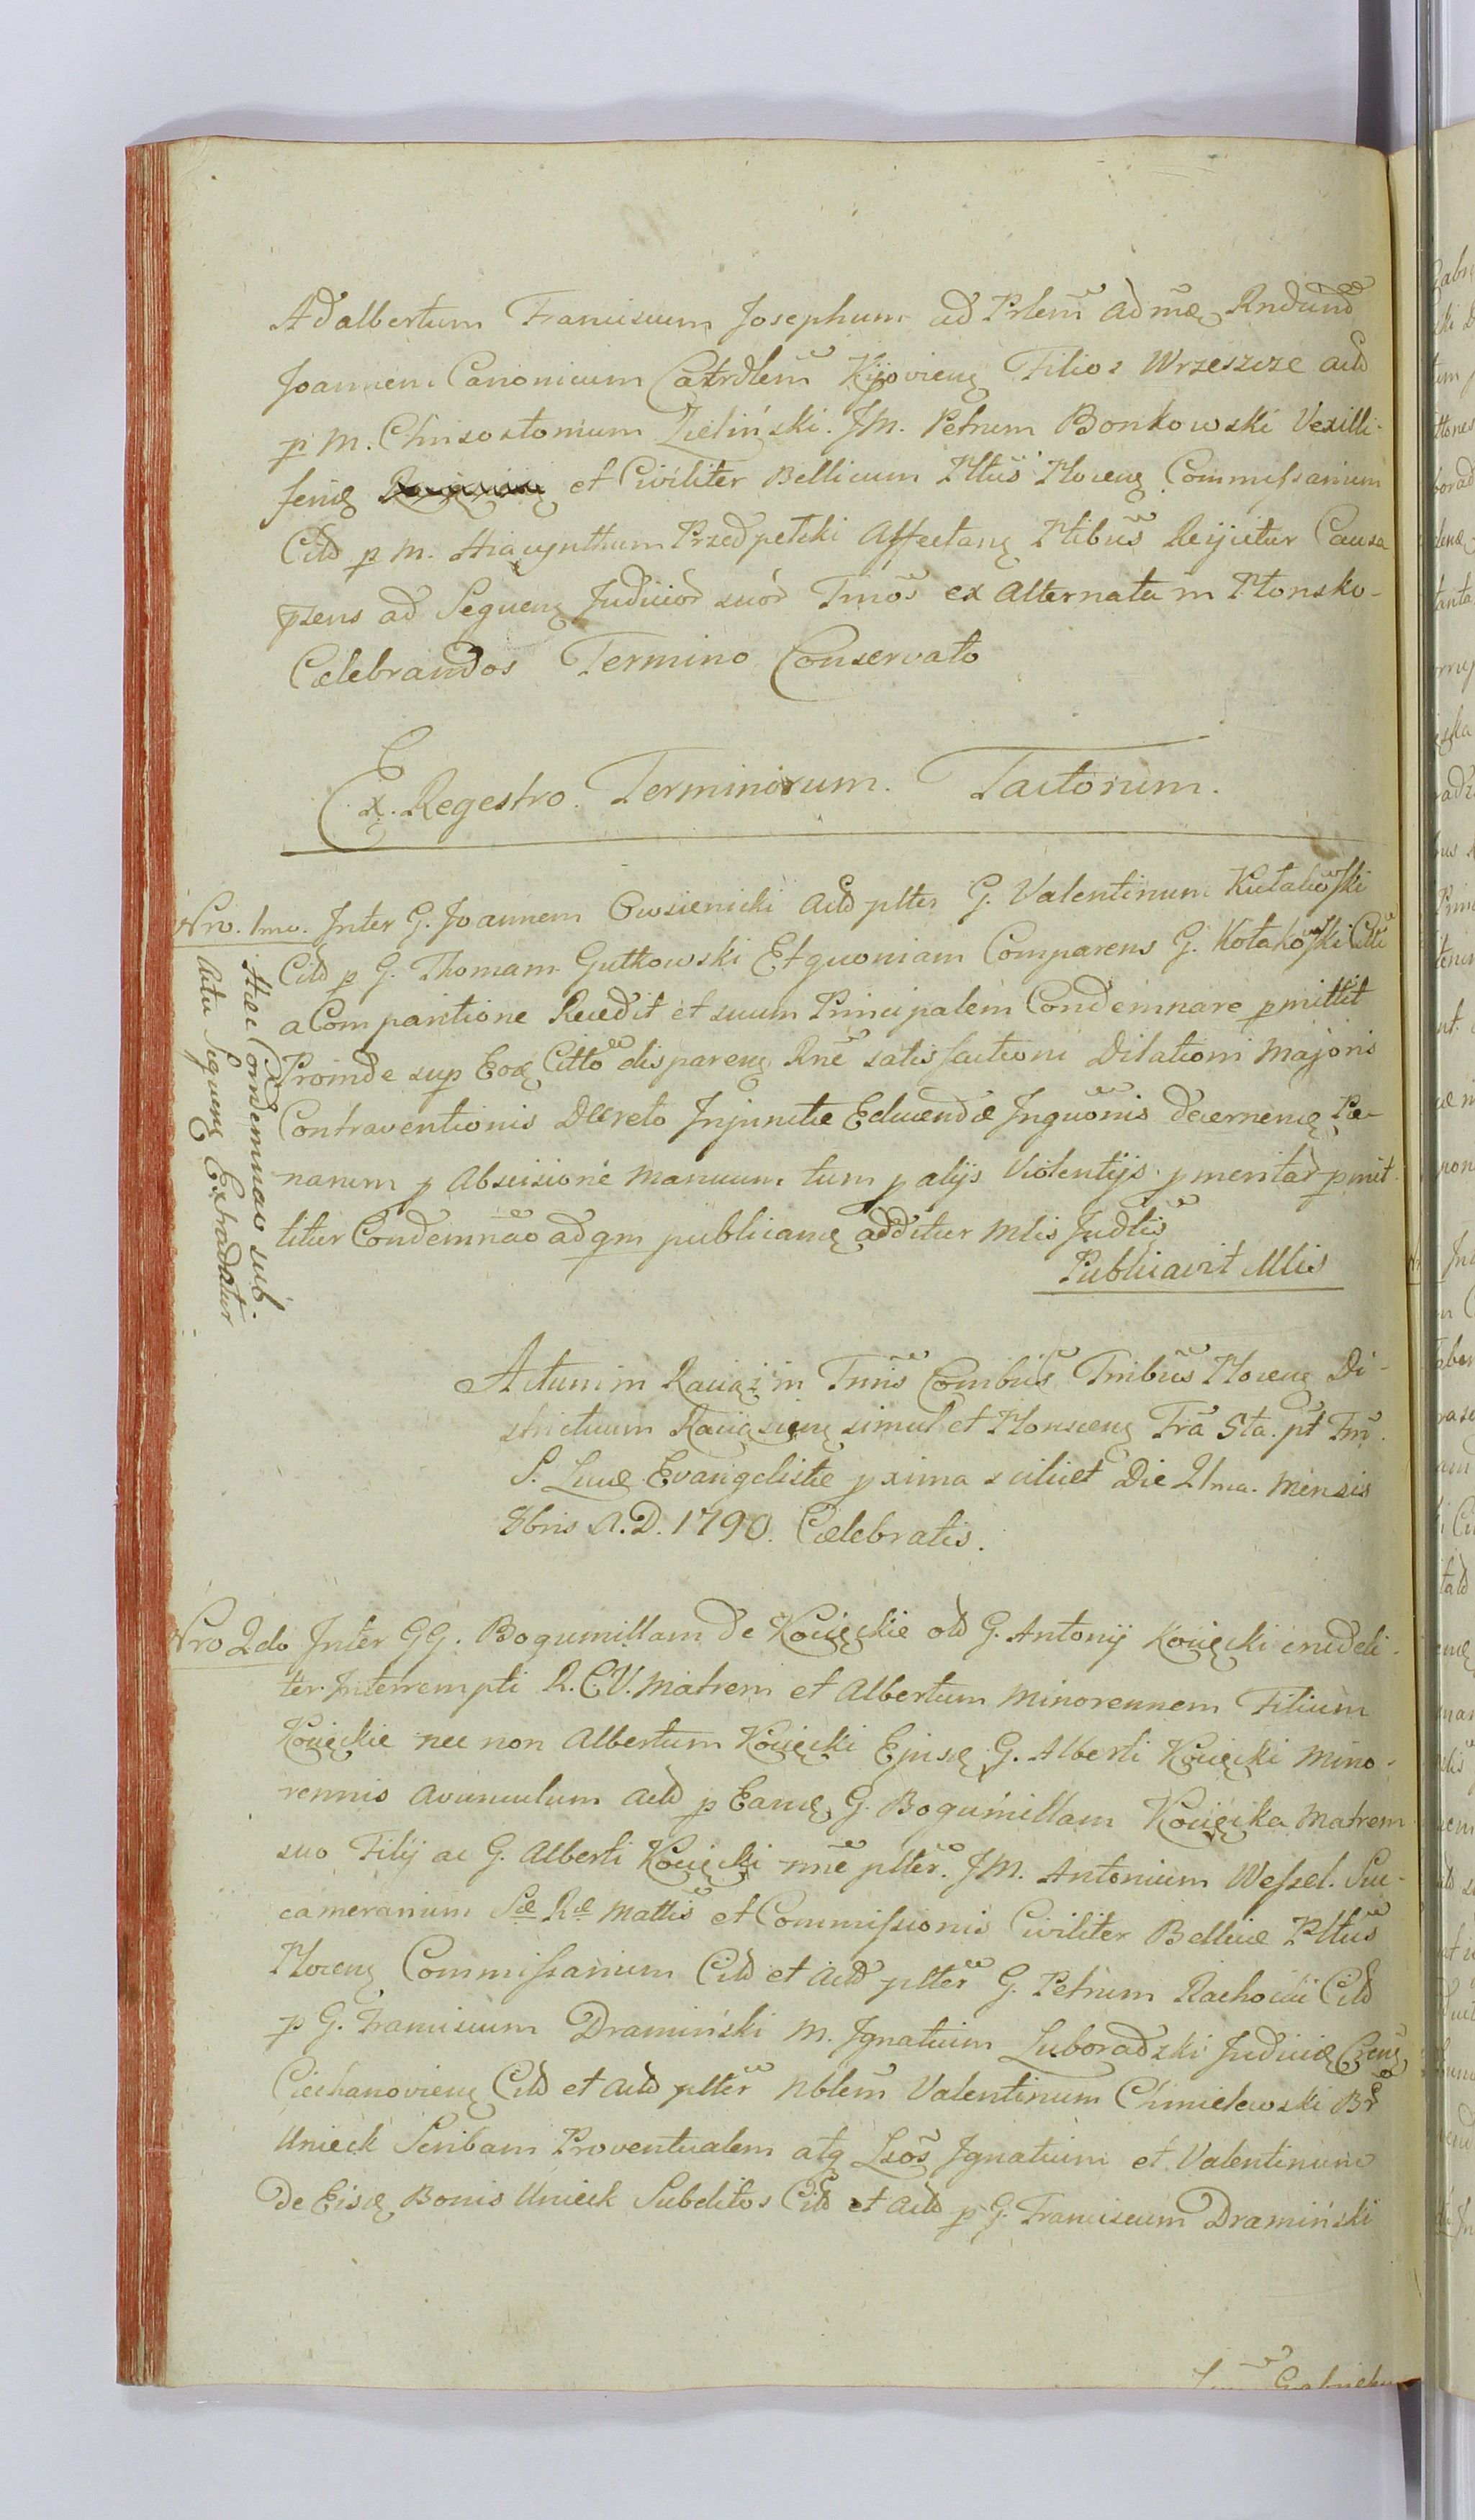 Adalbertum Franciscum Josephum ad Prlem adme Rndum
Joannem Canonicum Catrdlem Kijovien Filios Wrzeszcze actd
p M. Chrisostomum Zieliński. JM. Petrum Bonkowski Vexilli-
ferum et Civiliter Bellicum Pltus Plocen Commissarium
Citd p M. Hiacynthum Przedpełski Affectan Ptibus Reijcitur Causa
psens ad Sequen Judicior suor Tmos ex Alternata in Plonsko-
Celebrandos Termino Conservato
Ex. Regestro. Terminorum. Tactorum.
Nro. 1mo. Inter G. Joannem Owsienicki actd plter G. Valentinum Kułakowski
Citd p G. Thomam Gutkowski Et quoniam Comparens G. Kołakowski Citti
a Comparitione Recedit et suum Principalem Condemnare pmittit
Proinde sup Eod Citto disparen Rne satisfactioni Dilationi Majoris
Contraventionis Decreto Injunctae Educendae Inquonis decernen Pae-
narum p Abscisione manuum tum p alijs Violentijs p meritar pmit-
titur Condemnao ad qm publicand additur Mlis Judtis
Publicavit Mlis
Haec Condemnao sub-
Actu Sequen Extradatur
Actum in Raciąż in Tmis Conibus Tmibus Plocen Di-
strictuum Raciążien simul et Plonscen Fra 5ta. pt Fm.
S. Lucae Evangelistae pxima scilicet Die 21ma. Mensis
8bris A.D. 1790. Celebratis.
Nro 2do Inter GG. Bogumillam de Kocięckie old G. Antonij Kocięcki crudeli-
ter Interrempti R.C.V. Matrem et Albertum Minorennem Filium
Kocięckie nec non Albertum Kocięcki Ejusd G. Alberti Kocięcki Mino-
rennis Avunculum actd p Eand G. Bogumillam Kocięcka Matrem
suo Filij ac G. Alberti Kocięcki nne plter. JM. Antonium Wessel. Suc-
camerarium Sae Rae Mattis et Commissionis Civiliter Bellicae Pltus
Plocen Commissarium Citd et actd plter G. Petrum Rachocki Citd
p G. Franciscum Dramiński M. Ignatium Luboradzki Judicem Czen
Ciechanovien Citd et actd plter Nblem Valentinum Chmielewski Br
Unieck Scribam Proventualem atq Lsos Ignatium et Valentinum
de Eisd Bonis Unieck Subditos Citd et actd p G. Franciscum Dramiński